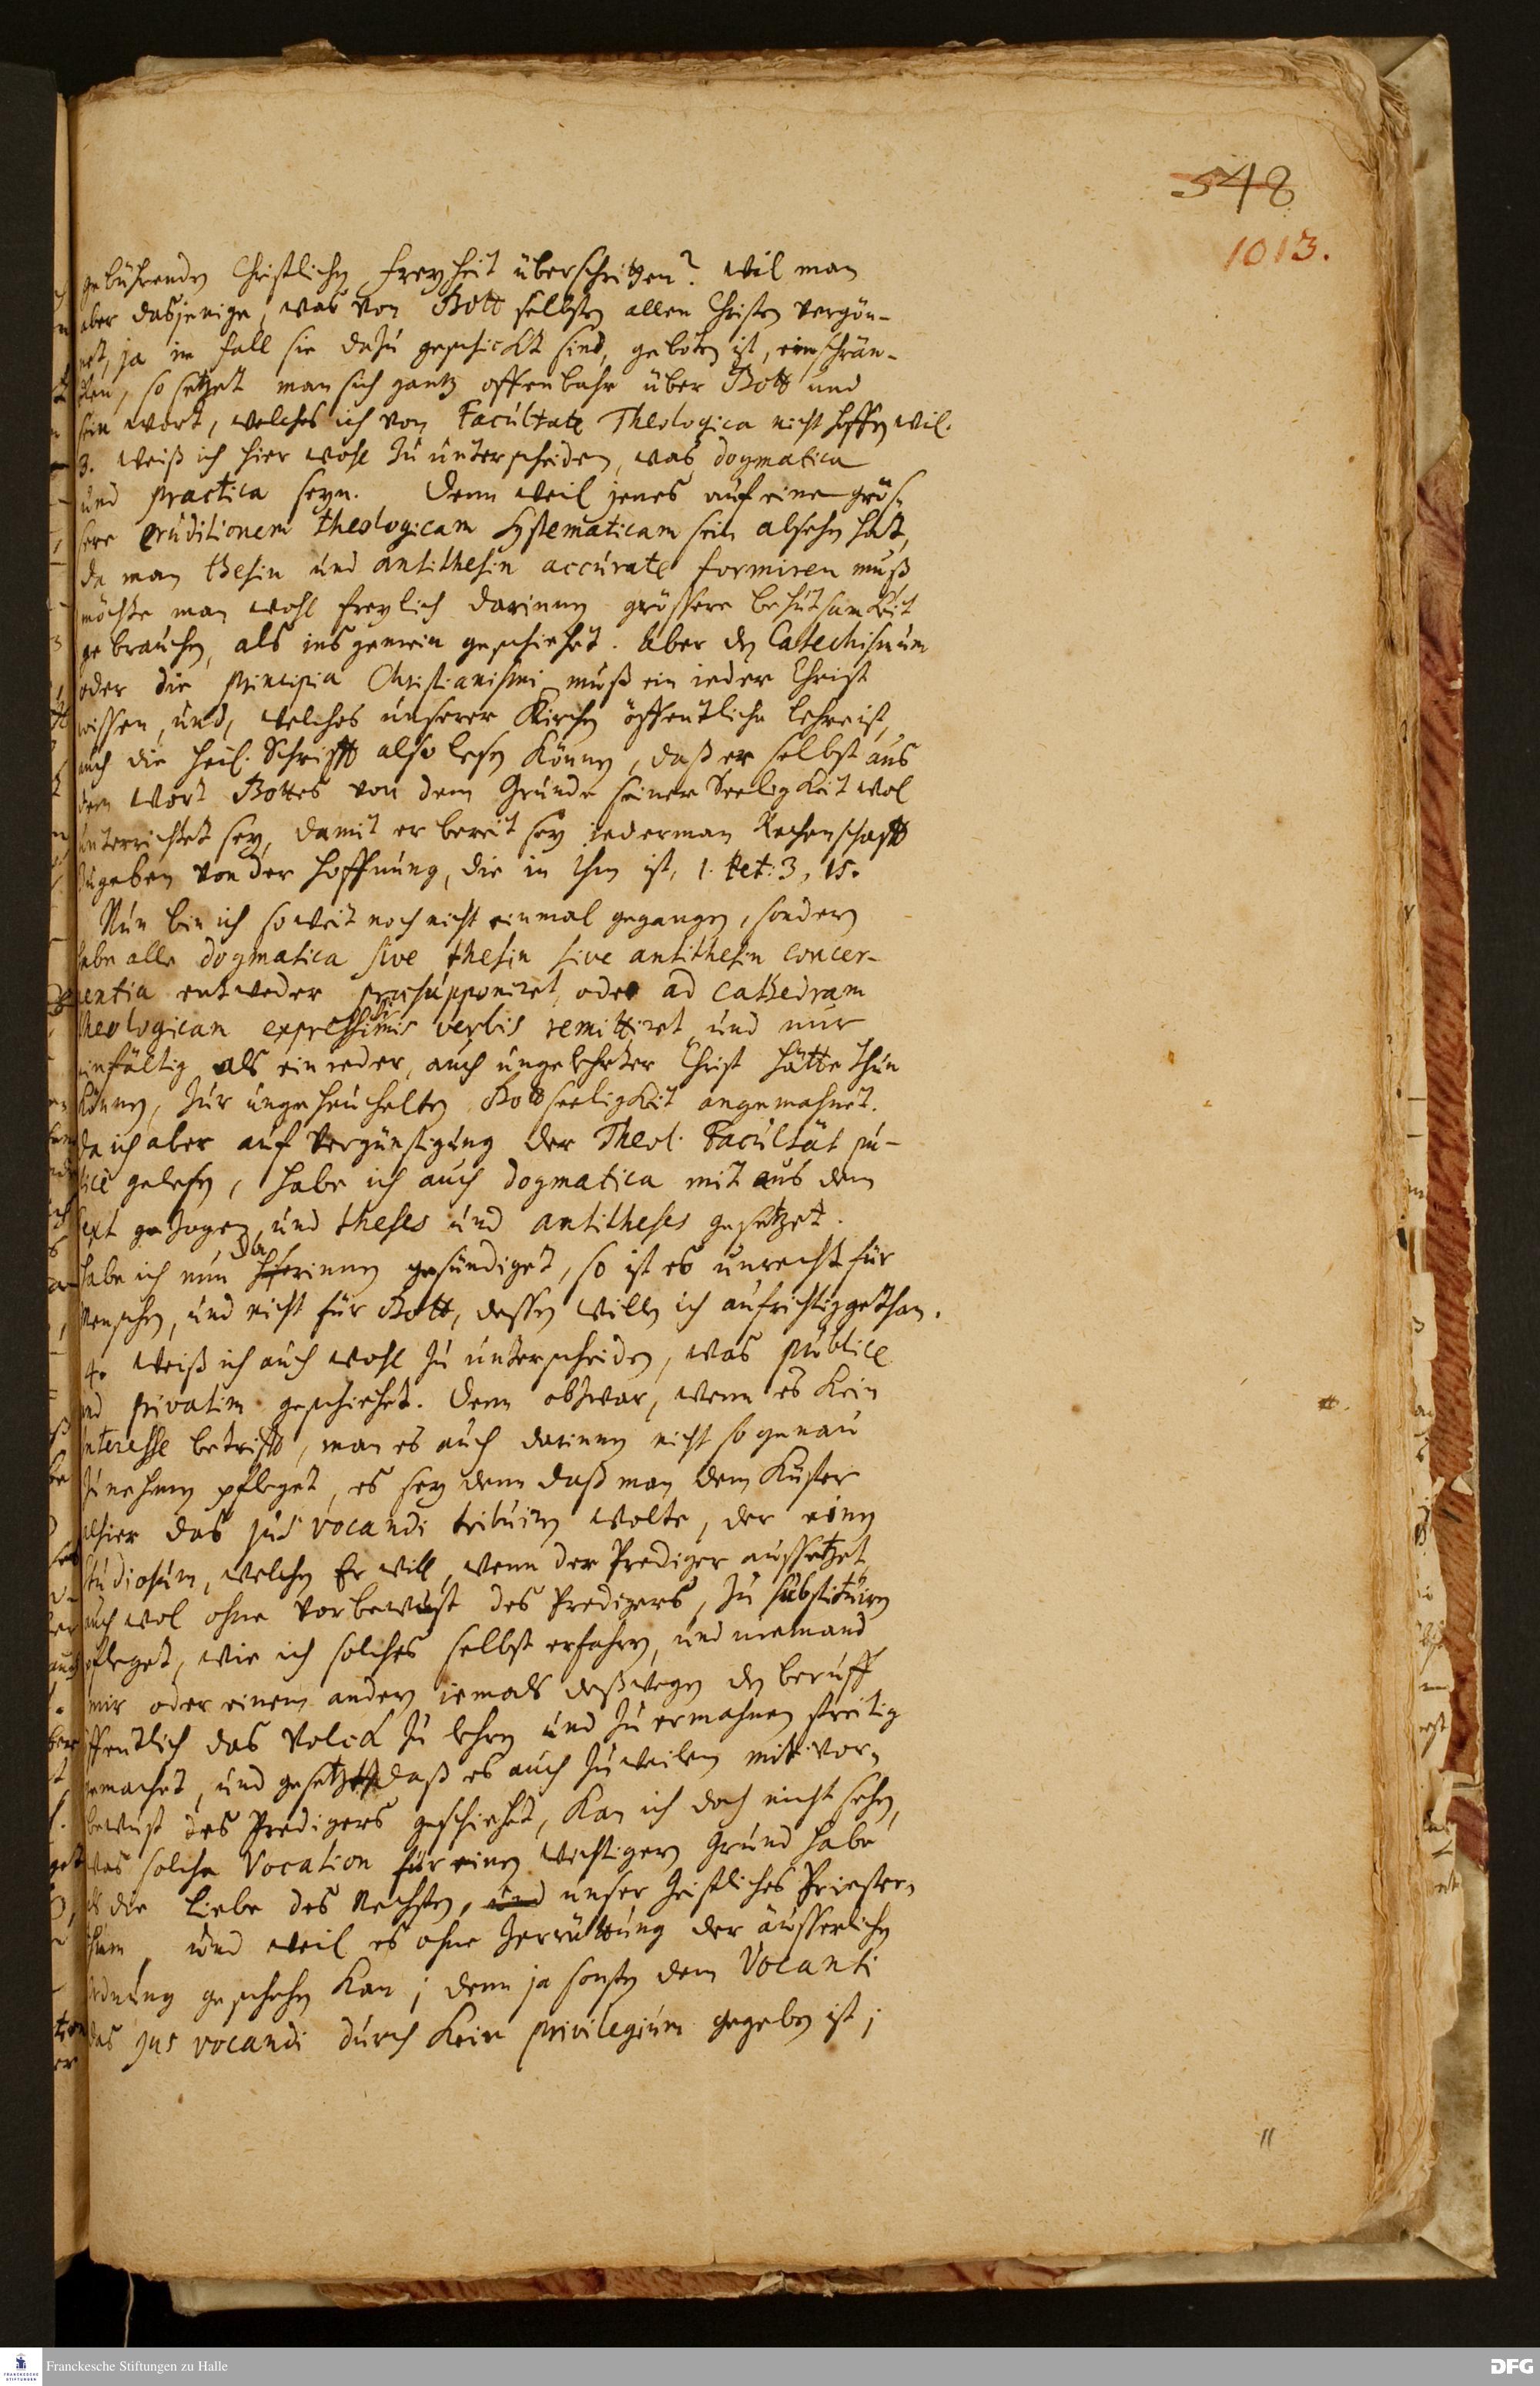 548
1013.
gebührenden Christlichen Freyheit überschritten? Wil man
aber dasjenige, was von Gott selbsten allen Christen vergön-
net, ja im fall sie dazu geschickt sind, geboten ist, einschrän-
cken, so setzet man sich gantz offenbahr über Gott und
sein wort, welches ich von Facultate Theologica nicht hoffen wil.
3. Weiß ich hier wohl zu unterscheiden, was dogmatica
und practica seyn. Denn weil jenes auf eine grös-
sere eruditionem theologicam systematicam sein absehen hat,
da man thesin und antithesin accurate formiren muß
möchte man wohl freylich darinnen grössere behutsamkeit
gebrauchen, als ins gemein geschiehet. Aber den Catechismum
oder die principia Christianismi muß ein ieder Christ
wissen, und, welches unserer Kirchen öffentliche lehre ist,
auch die heil. Schrifft also lesen können, daß er selbst aus
dem Wort Gottes von dem Grunde seiner Seeligkeit wol
unterrichtet sey, damit er bereit sey iederman Rechenschafft
zugeben von der hoffnung, die in Ihm ist, 1. Pet: 3, 15.
Nun bin ich so weit noch nicht einmal gegangen, sondern
habe alle dogmatica sive thesin sive antithesin concer-
nentia entweder praesupponiret, oder ad cathedram
theologicam expressissimis verbis remittiret, und nur
einfältig als ein ieder, auch ungelehrter Christ hätte thun
können, zur ungeheuchelten Gottseeligkeit angemahnet.
da ich aber auf Vergünstigung der Theol. Facultät pu-
blicè gelesen, habe ich auch dogmatica mit aus dem
Text gezogen, und theses und antitheses gesetzet.
habe ich nun hierinnen Da gesündiget, so ist es unrecht für
Menschen, und nicht für Gott, dessen willen ich aufrichtig gethan.
4. Weiß ich auch wohl zu unterscheiden, was publice
und privatim geschiehet. Denn obzwar, wenn es kein
interesse betrifft, man es auch darinnen nicht so genau
zu nehmen pfleget, es sey denn daß man dem Küster
alhier das jus vocandi tribuiren wolte, der einen
studiosum, welchen Er will, wenn der Prediger aussetzet
auch wol ohne vorbewust des Predigers, zu substituiren
pfleget, wie ich solches selbst erfahren, und niemand
mir oder einem andern iemals deßwegen den beruff
öffentlich das Volck zu lehren und zu ermahnen streitig
gemachet, und gesetzt daß es auch zuweilen mit vor-
bewust des Predigers geschiehet, kan ich doch nicht sehen,
was solche Vocation für einen wichtigern Grund habe
als die Liebe des Nechsten, und unser Geistliches Priester-
thum, und weil es ohne Zerrüttung der äusserlichen
ordnung geschehen kan; denn ja sonsten dem Vocanti
das jus vocandi durch kein privilegium gegeben ist;
11
Franckesche Stiftungen zu Halle
DFG